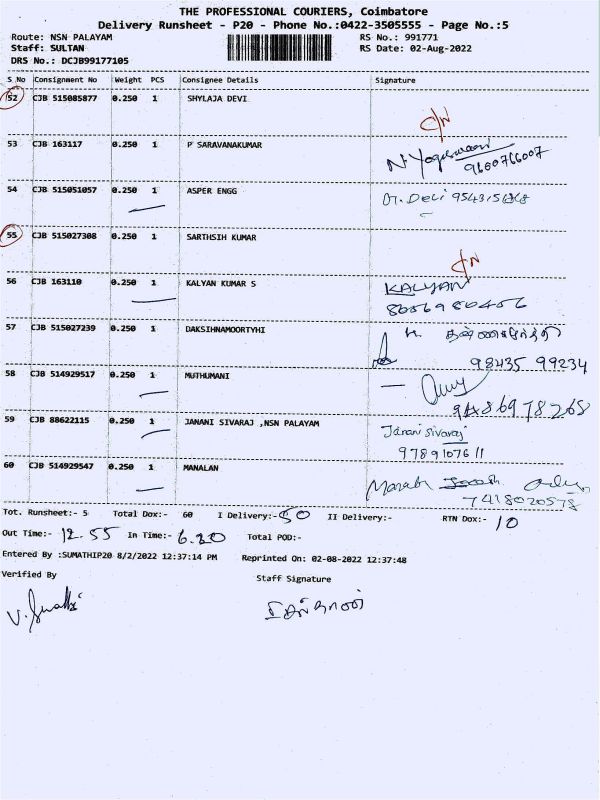 THE PROFESSIONAL COURIERS, Coimbatore
Delivery Runsheet - P20 - Phone No.:0422-3505555 - Page No.:5
Route: NSN PALAYAM RS No.: 991771
Staff: SULTAN RS Date: 02-Aug-2022
DRS No.: DCJB99177105
S No Consignment No Weight PCS Consignee Details Signature
52 CJB 515085877 0.250 1 SHYLAJA DEVI
C/N
53 CJB 163117 0.250 1 P SARAVANAKUMAR
9600766007
54 CJB 515051057 0.250 1 ASPER ENGG
55 CJB 515027308 0.250 1 SARTHSIH KUMAR
C/N
56 CJB 163110 0.250 1 KALYAN KUMAR S KALYAN
8056980456
57 CJB 515027239 0.250 1 DAKSIHNAMOORTYHI
98435 99234
58 CJB 514929517 0.250 1 MUTHUMANI
9486978268
59 CJB 88622115 0.250 1 JANANI SIVARAJ ,NSN PALAYAM Janani sivaraj
9789107611
60 CJB 514929547 0.250 1 MANALAN
7418020578
Tot. Runsheet:- 5 Total Dox:- 60 I Delivery:- 50 II Delivery:- RTN Dox:- 10
Out Time:- 12.55 In Time:- 6.20 Total POD:-
Entered By :SUMATHIP20 8/2/2022 12:37:14 PM Reprinted On: 02-08-2022 12:37:48
Verified By Staff Signature